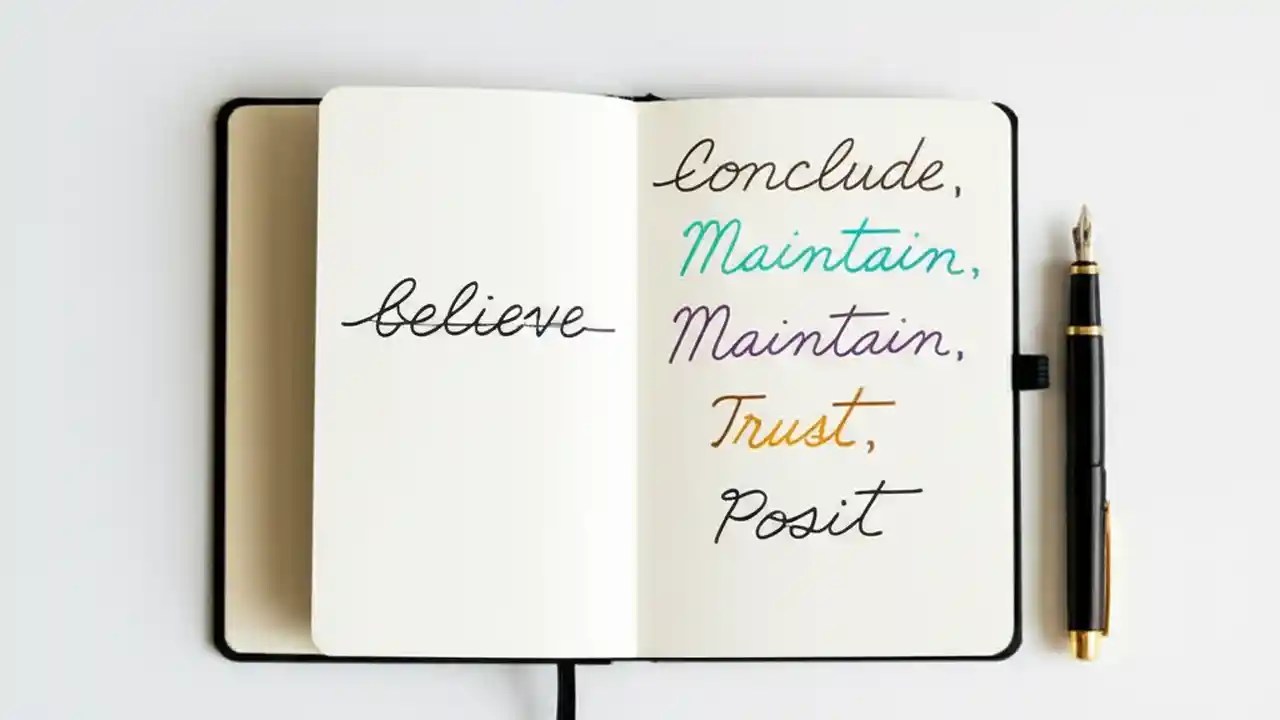 believe
Conclude,
Maintain,
Maintain,
Trust,
Posit